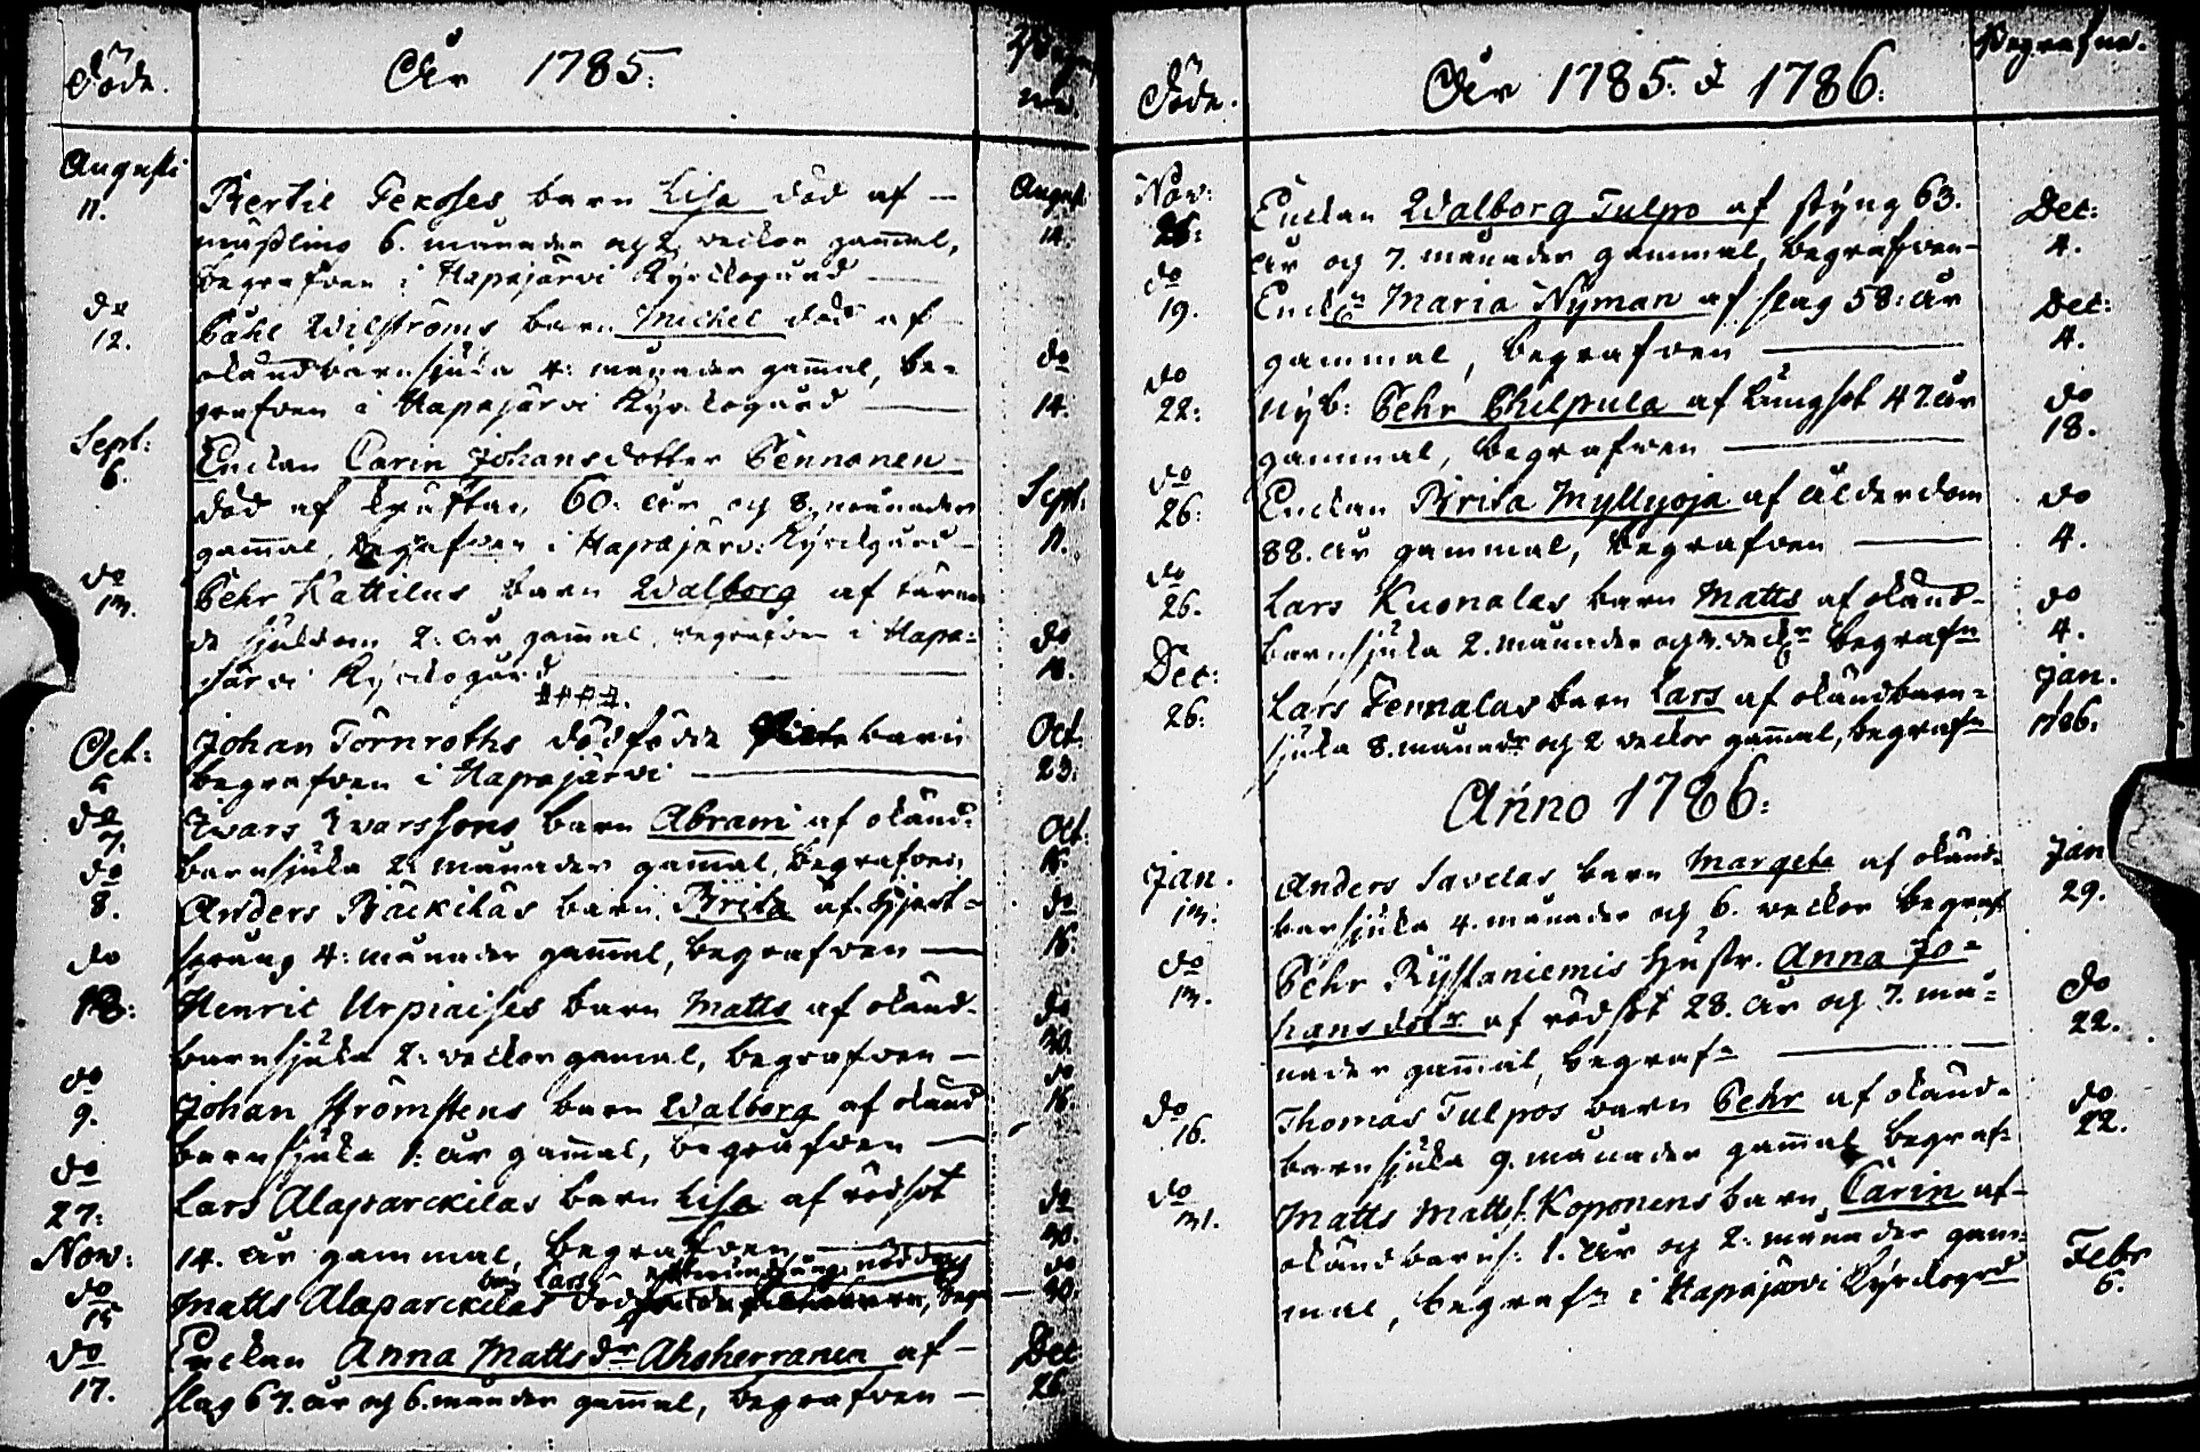 Döde.
År 1785:
Augusti
11.
Bertil Pekoses barn Lisa död af —
mässling 6. månader och 2 veckor gam̄al,
begrafven i Hapajärvi Kyrkogård —
August:
14.
do
12.
Påhl Wilströms barn Michel död af
okänd barnsjuka 4: månader gam̄al, be-
grafven i Hapajärvi Kyrkogård —
do
14.
Sept:
6.
Enckan Carin Johansdotter Pennanen
död af kräftan, 60. år och 8. månader
gam̄al, begrafven i Hapajärvi Kyrkogård —
Sept:
11.
do
13.
Pehr Kattilus barn Walborg af täran-
de sjukdom 2: år gam̄al, begrafven i Hapa-
järvi Kyrkogård —
do
18.
Oct:
Johan Törnroths dödfödde barn
begrafven i Hapajärvi —
Oct:
23:
do
7.
Ivars Ivarssons barn Abram af okänd-
barnsjuka 2: månader gam̄al, begrafven
Oct:
16.
do
8.
Anders Räckiläs barn Brita af hjert-
språng 4: månader gam̄al, begrafven —
do
16:
do
18:
Henric Urpiaises barn Matts af okänd-
barnsjuka 2: veckor gam̄al, begrafven —
do
30.
do
9.
Johan Strömstens barn Walborg af okänd
barnsjuka 1: år gam̄al, begrafven —
do
16:
do
27:
Lars Alaparckilas barn Lisa af rödsot
14. år gammal, begrafven —
do
30.
Nov:
do
15
Matts Alaparckilas barn Lars död
do
30.
do
17.
Enckan Anna Mattsdr Ahoherranen af —
slag 67. år och 6. månader gam̄al, begrafven —
Dec
26.
Döde.
År 1785: & 1786:
Begrafne.
Nov:
26:
Enckan Walborg Tulpo af styng 63.
år och 7. månader gammal, begrafven —
Dec:
4.
do
19.
Enckn Maria Nyman af slag 58: år
gammal, begrafven —
Dec:
4.
do
22:
Nyb: Pehr Philpula af lungsot 47. år
gammal, begrafven —
do
18.
do
26:
Enckan Brita Myllyoja af ålderdom
88. år gammal, begrafven —
do
4.
do
26.
Lars Kuonalas barn Matts af okänd-
barnsjuka 2. månader och veckr begrafn
do
4.
Dec:
26:
Lars Pernalas barn Lars af okändbarn-
sjuka 8. månadr och 2 veckor gam̄al, begrafn
Jan.
1786:
Anno 1786:
Jan.
13.
Anders Savelas barn Margeta af okänd-
barnsjuka 4. månader och 6. veckor begraf
Jan
29.
do
13.
Pehr Rystaniemis hustr. Anna Jo-
hansdotr. af rödsot 28. år och 7. må-
nader gam̄al, begrafn —
do
22.
do
16.
Thomas Tulpos barn Pehr af okänd-
barnsjuka 9. månader gam̄al begrafn
do
22.
do
31.
Matts Matts: Koponens barn Carin af —
okändbarns: 1. år och 2. månader gam-
mal, begrafn i Hapajärvi Kyrkogrd
Febr
6.